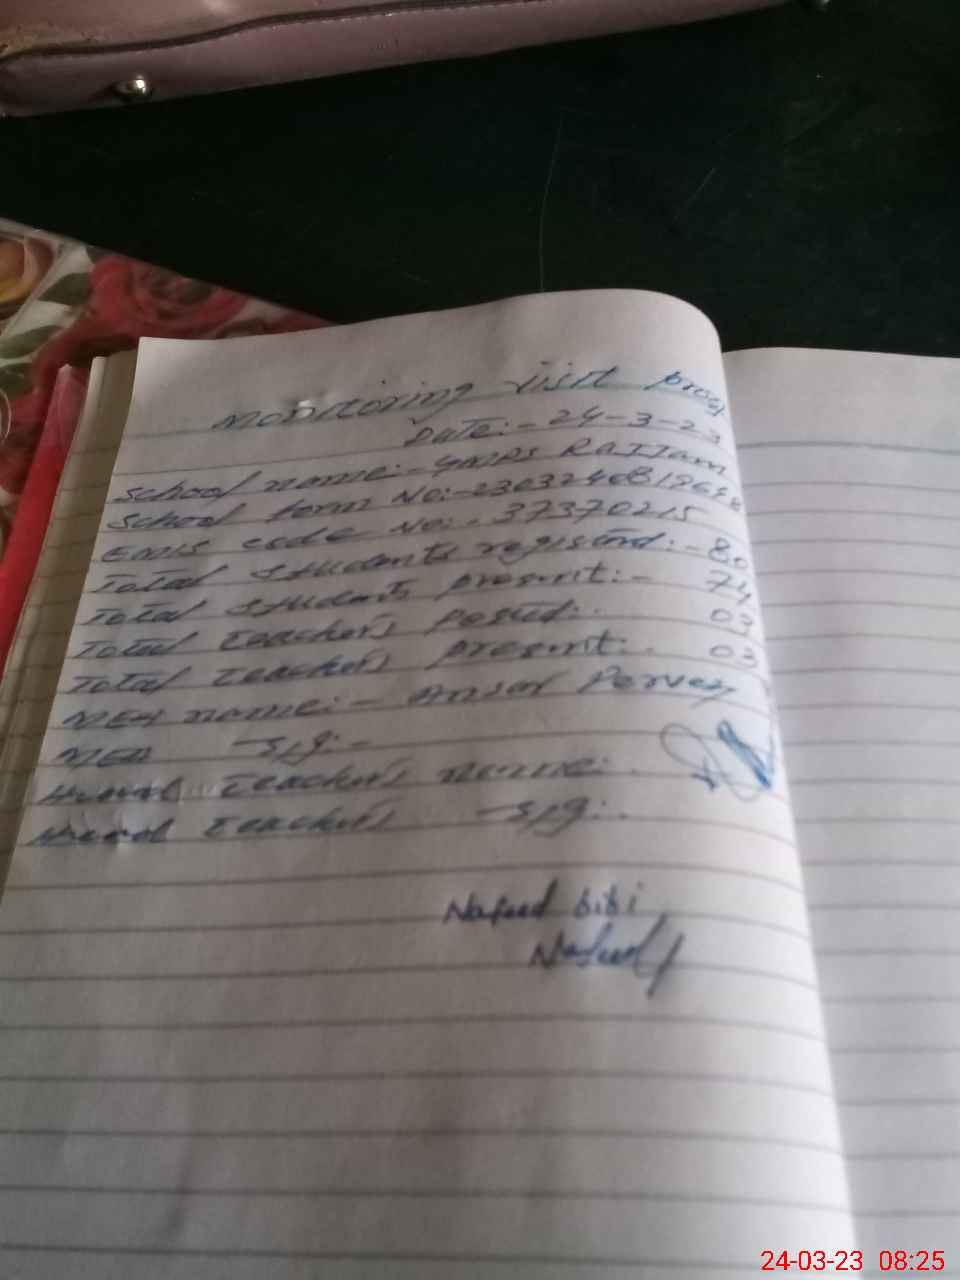 Monitoring visit proof
Date:- 24-3-23
School name:- GMPS Rattam
School form No:-
EMIS code No:- 37370215
Total students registerd:- 80
Total students present:- 74
Total teachers posted:- 03
Total teachers present:- 03
MEA name:- Ansar Pervez
MEA sig:-
Head teacher's name:-
Head teacher's sig:-
Nafeed bibi
Nafeed
24-03-23 08:25